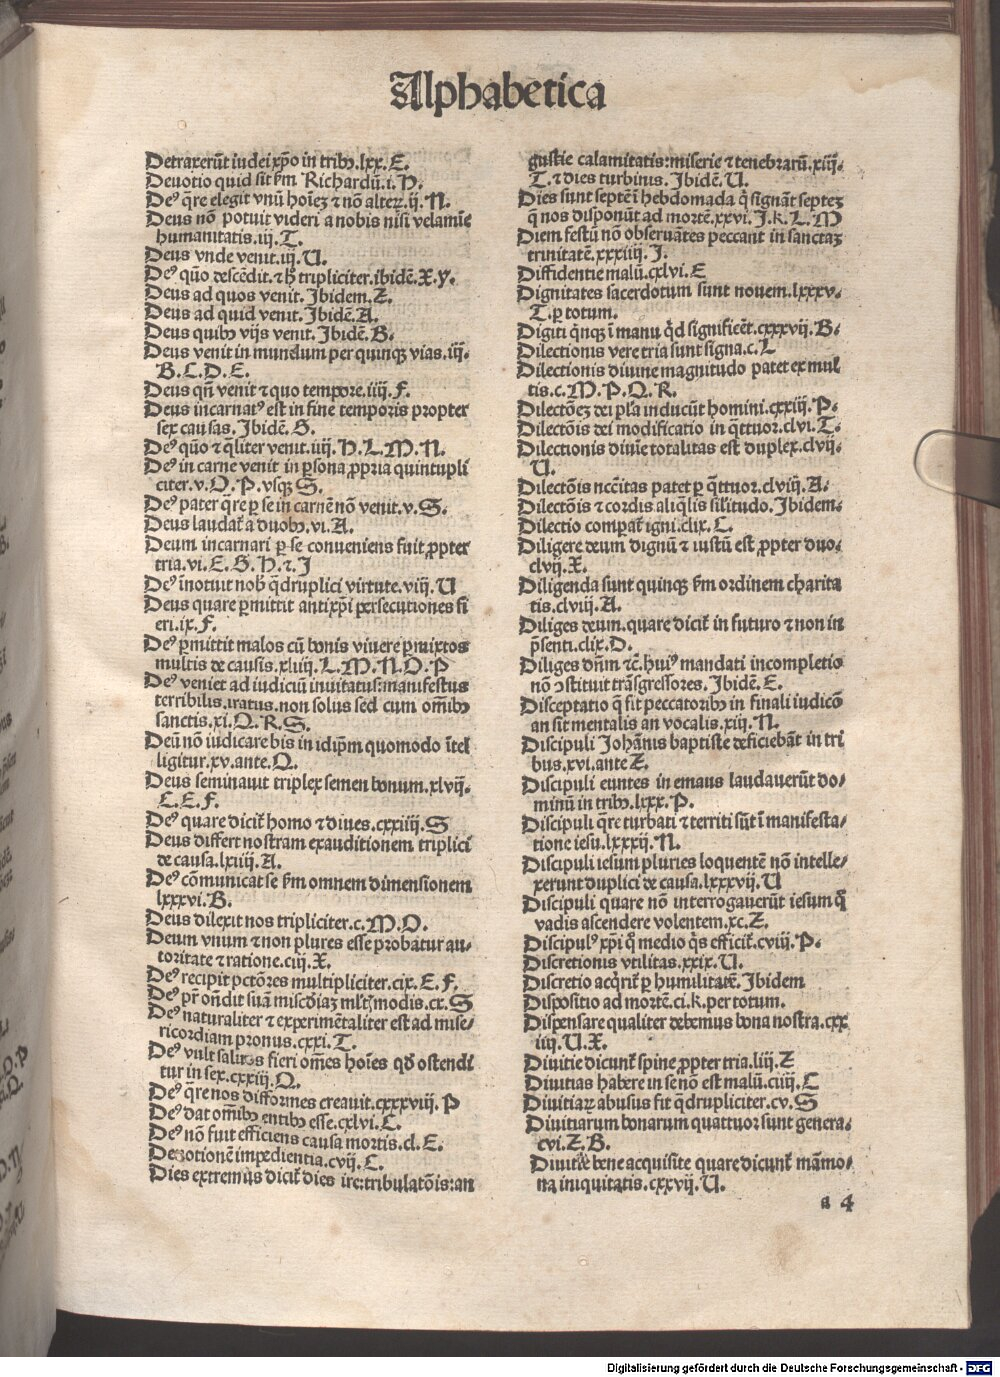 Alphabetica
Detraxerūt iudei xp̄o in tribꝫ.lxx.E.
Deuotio quid sit ẜm Richardū.i.H.
Deꝰ q̄re elegit vnū hoīeꝫ ⁊ nō alteꝝ.ij.N.
Deus nō potuit videri a nobis nisi velamīe
humanitatis.iij.T.
Deus vnde venit.iij.U.
Deꝰ quō descēdit.⁊ hͦ tripliciter.ibidē.X.y.
Deus ad quos venit. Ibidem.Z.
Deus ad quid venit. Ibidē.A.
Deus quibꝫ vijs venit. Ibidē.B.
Deus venit in mundum per quinqꝫ vias.iiij.
B.C.D.E.
Deus qn̄ venit ⁊ quo tempore.iiij.F.
Deus incarnatꝰ est in fine temporis propter
sex causas. Ibidē.G.
Deꝰ quō ⁊ q̄liter venit.iiij.H.L.M.N.
Deꝰ in carne venit in ꝑsona ꝓpria quintupli
citer.v.O.P.vsqꝫ S.
Deꝰ pater q̄re ꝑ se in carnē nō venit.v.S.
Deus laudat̄ a duobꝫ.vi.A.
Deum incarnari ꝑ se conueniens fuit ꝓpter
tria.vi.E.G.H.⁊.I
Deꝰ īnotuit nob̄ q̄druplici virtute.viij.U
Deus quare ꝑmittit antixp̄i persecutiones fi
eri.ix.F.
Deꝰ ꝑmittit malos cū bonis viuere ꝑmixtos
multis de causis.xliiij.L.M.N.O.P
Deꝰ veniet ad iudiciū inuitatus:manifestus
terribilis.iratus.non solus sed cum om̄ibꝫ
sanctis.xi.Q.R.S.
Deū nō iudicare bis in idip̄m quomodo ītel
ligitur.xv.ante.Q.
Deus seminauit triplex semen bonum.xlvij.
C.E.F.
Deꝰ quare dicit̄ homo ⁊ diues.cxxiiij.S
Deus differt nostram exauditionem triplici
de causa.lxiiij.A.
Deꝰ cōmunicat se ẜm omnem dimensionem
lxxxvi.B.
Deus dilexit nos tripliciter.c.M.O.
Deum vnum ⁊ non plures esse probatur au⸗
toritate ⁊ ratione.ciij.X.
Deꝰ recipit pctōres multipliciter.cix.E.F.
Deꝰ pr̄ on̄dit suā miscd̄iaꝫ ml̄tꝫ modis.cx.S
Deꝰ naturaliter ⁊ experimētaliter est ad mise⸗
ricordiam pronus.cxxi.T.
Deꝰ vult saluos fieri om̄es hoīes qd̄ ostendi
tur in sex.cxxiij.O.
Deꝰ q̄re nos difformes creauit.cxxxviij.P
Deꝰ dat om̄ibꝫ entibꝫ esse.cxlvi.C.
Deꝰ nō fuit efficiens causa mortis.cl.E.
Deuotionē impedientia.cvij.C.
Dies extremus dicit̄ dies ire:tribulatōis:an
gustie calamitatis:miserie ⁊ tenebrarū.xiij.
T.⁊ dies turbinis. Ibidē.U.
Dies sunt septē ī hebdomada q̄ signāt septeꝫ
q̄ nos disponūt ad mortē.xxvi.I.k.L.M
Diem festū nō obseruātes peccant in sanctaꝫ
trinitatē.xxxiiij.I.
Diffidentie malū.cxlvi.E
Dignitates sacerdotum sunt nouem.lxxxv.
T.ꝑ totum.
Digiti q̄nqꝫ ī manu q̇d significēt.cxxxvij.B.
Dilectionis vere tria sunt signa.c.L
Dilectionis diuine magnitudo patet ex mul
tis.c.M.P.Q.R.
Dilectōeꝫ dei pl̄a inducūt homini.cxxiij.P.
Dilectōis dei modificatio in q̄ttuor.clvi.T.
Dilectionis diuīe totalitas est duplex.clvij.
U.
Dilectōis nccītas patet ꝑ q̄ttuor.clviij.A.
Dilectōis ⁊ cordis aliq̄lis sīlitudo. Ibidem.
Dilectio comparat̄ igni.clix.C.
Diligere deum dignū ⁊ iustū est ꝓpter duo.
clvij.X.
Diligenda sunt quinqꝫ ẜm ordinem charita
tis.clviij.A.
Diliges deum.quare dicit̄ in futuro ⁊ non in
p̄senti.clix.D.
Diliges dn̄m ⁊c̄.huiꝰ mandati incompletio
nō ꝯstituit trāsgressores. Ibidē.E.
Disceptatio q̄ fit peccatoribꝫ in finali iudicō
an sit mentalis an vocalis.xiij.N.
Discipuli Johānis baptiste deficiebāt in tri
bus.xvi.ante Z.
Discipuli euntes in emaus laudauerūt do⸗
minū in tribꝫ.lxxx.P.
Discipuli q̄re turbati ⁊ territi sūt ī manifesta⸗
tione iesu.lxxxij.N.
Discipuli iesum pluries loquentē nō intelle⸗
xerunt duplici de causa.lxxxvij.U
Discipuli quare nō interrogauerūt iesum q̊
vadis ascendere volentem.xc.Z.
Discipulꝰ xp̄i q̊ medio q̇s efficit̄.cviij.P.
Discretionis vtilitas.xxix.U.
Discretio acq̇rit̄ ꝑ humilitatē. Ibidem
Dispositio ad mortē.ci.k.per totum.
Dispensare qualiter debemus bona nostra.cxx
iiij.U.X.
Diuitie dicunt̄ spine ꝓpter tria.liij.Z
Diuitias habere in se nō est malū.ciiij.C
Diuitiaꝝ abusus fit q̄drupliciter.cv.S
Diuitiarum bonarum quattuor sunt genera.
cvi.Z.B.
Diuitie bene acquisite quare dicunt̄ māmo⸗
na iniquitatis.cxxvij.U.
a 4
Digitalisierung gefördert durch die Deutsche Forschungsgemeinschaft - DFG